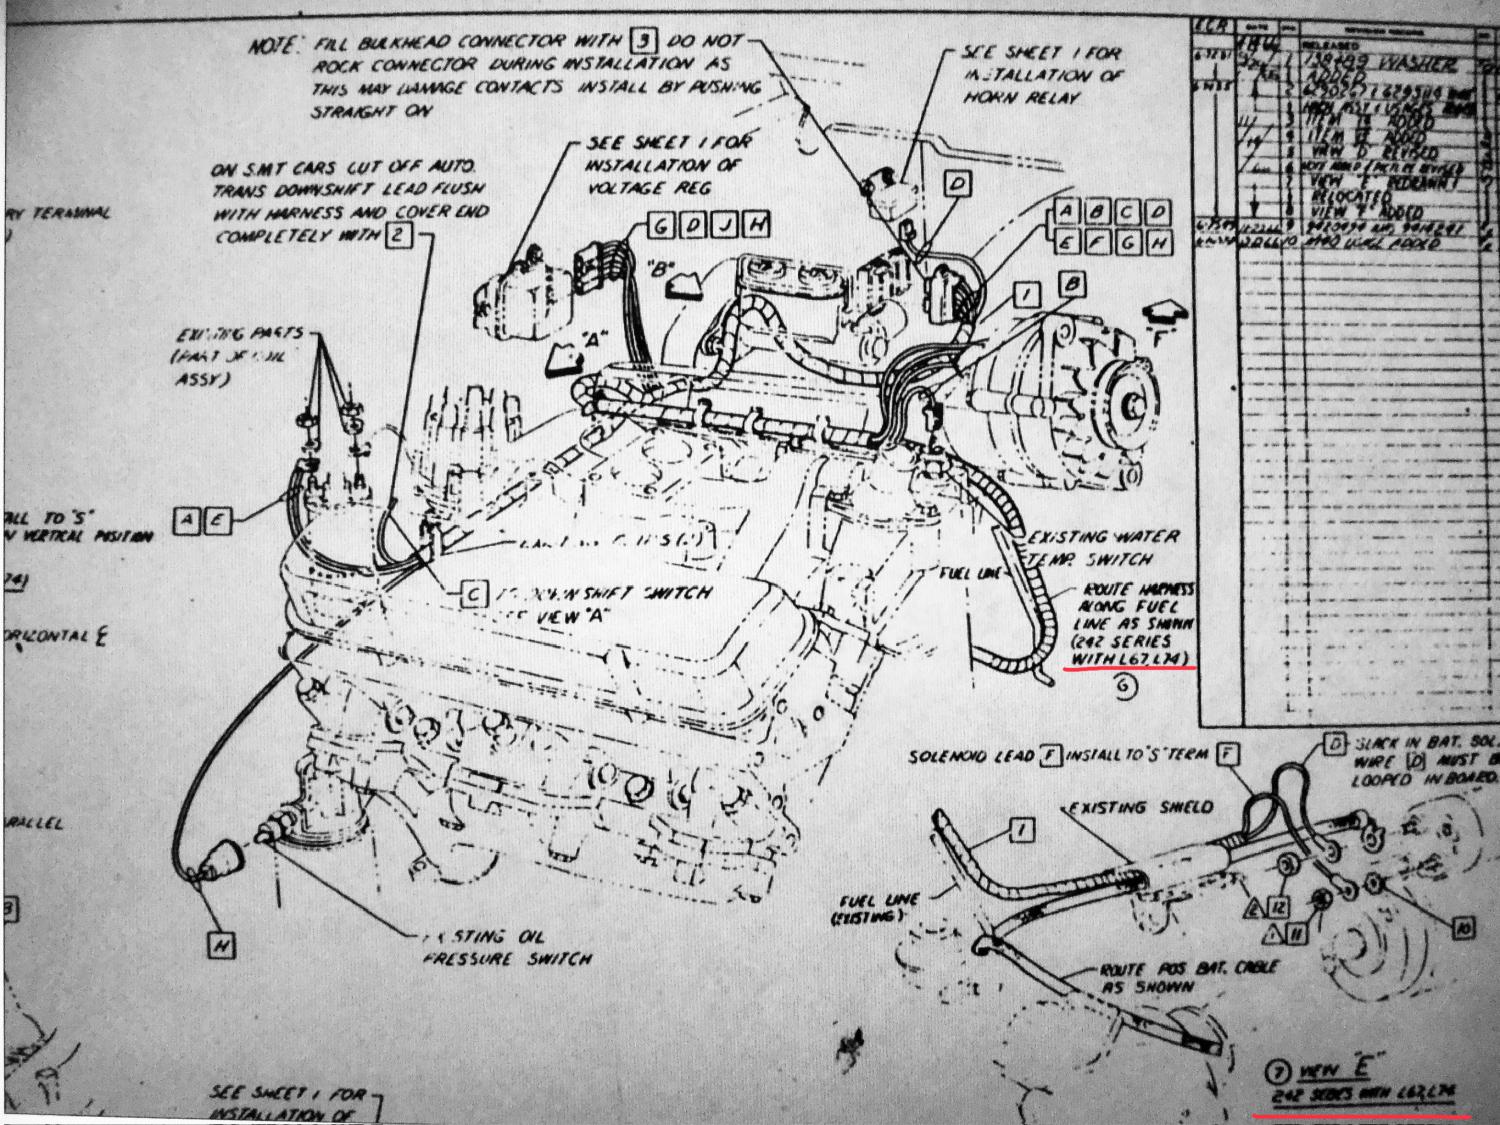 NOTE: FILL BULKHEAD CONNECTOR WITH 3 DO NOT
ROCK CONNECTOR DURING INSTALLATION AS
THIS MAY DAMAGE CONTACTS INSTALL BY PUSHING
STRAIGHT ON
SEE SHEET 1 FOR
INSTALLATION OF
HORN RELAY
SEE SHEET 1 FOR
INSTALLATION OF
VOLTAGE REG
ON S.M.T CARS CUT OFF AUTO.
TRANS DOWNSHIFT LEAD FLUSH
WITH HARNESS AND COVER END
COMPLETELY WITH 2
RY TERMINAL
)
G D J H
D
A B C D
E F G H
"B"
"A"
1
B
F
EXISTING PARTS
(PART OF
ASSY)
A E
ALL TO "S"
N VERTICAL POSITION
74)
ORIZONTAL
C
DOWNSHIFT SWITCH
VIEW "A"
EXISTING WATER
TEMP. SWITCH
FUEL LINE
ROUTE HARNESS
ALONG FUEL
LINE AS SHOWN
(242 SERIES
WITH L67, L74)
6
RALLEL
B
H
EXISTING OIL
PRESSURE SWITCH
SEE SHEET 1 FOR
INSTALLATION OF
SOLENOID LEAD F INSTALL TO "S" TERM F
D SLACK IN BAT. SOL.
WIRE D MUST B
LOOPED INBOARD.
EXISTING SHIELD
1
FUEL LINE
(EXISTING)
2 12
1 11
10
ROUTE POS BAT. CABLE
AS SHOWN
7 VIEW "E"
242 SERIES WITH L67, L74
DATE
RELEASED
WASHER
ADDED
ITEM ADDED
ITEM ADDED
VIEW D REVISED
VIEW E REDRAWN
RELOCATED
VIEW F ADDED
ADDED